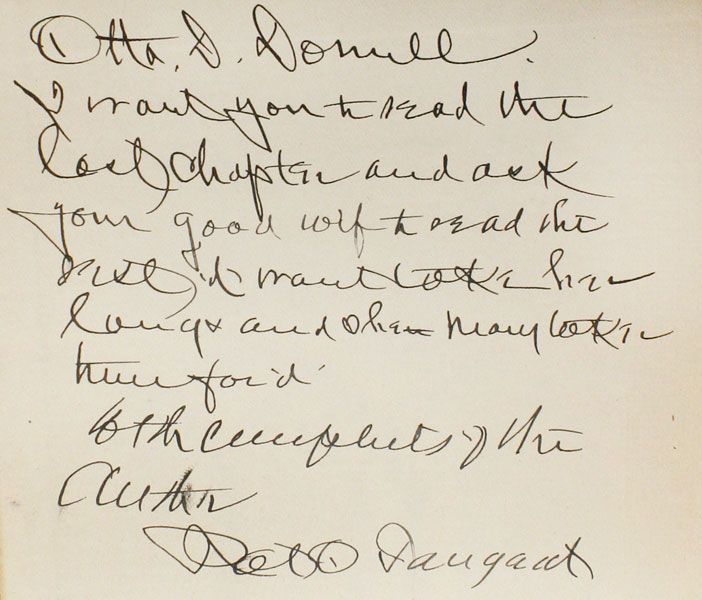 Otto. D. Donnell.
I want you to read the
last chapter and ask
your good wife to read the
rest, it wont take her
long & and she may take
time for it
With compliments of the
Author